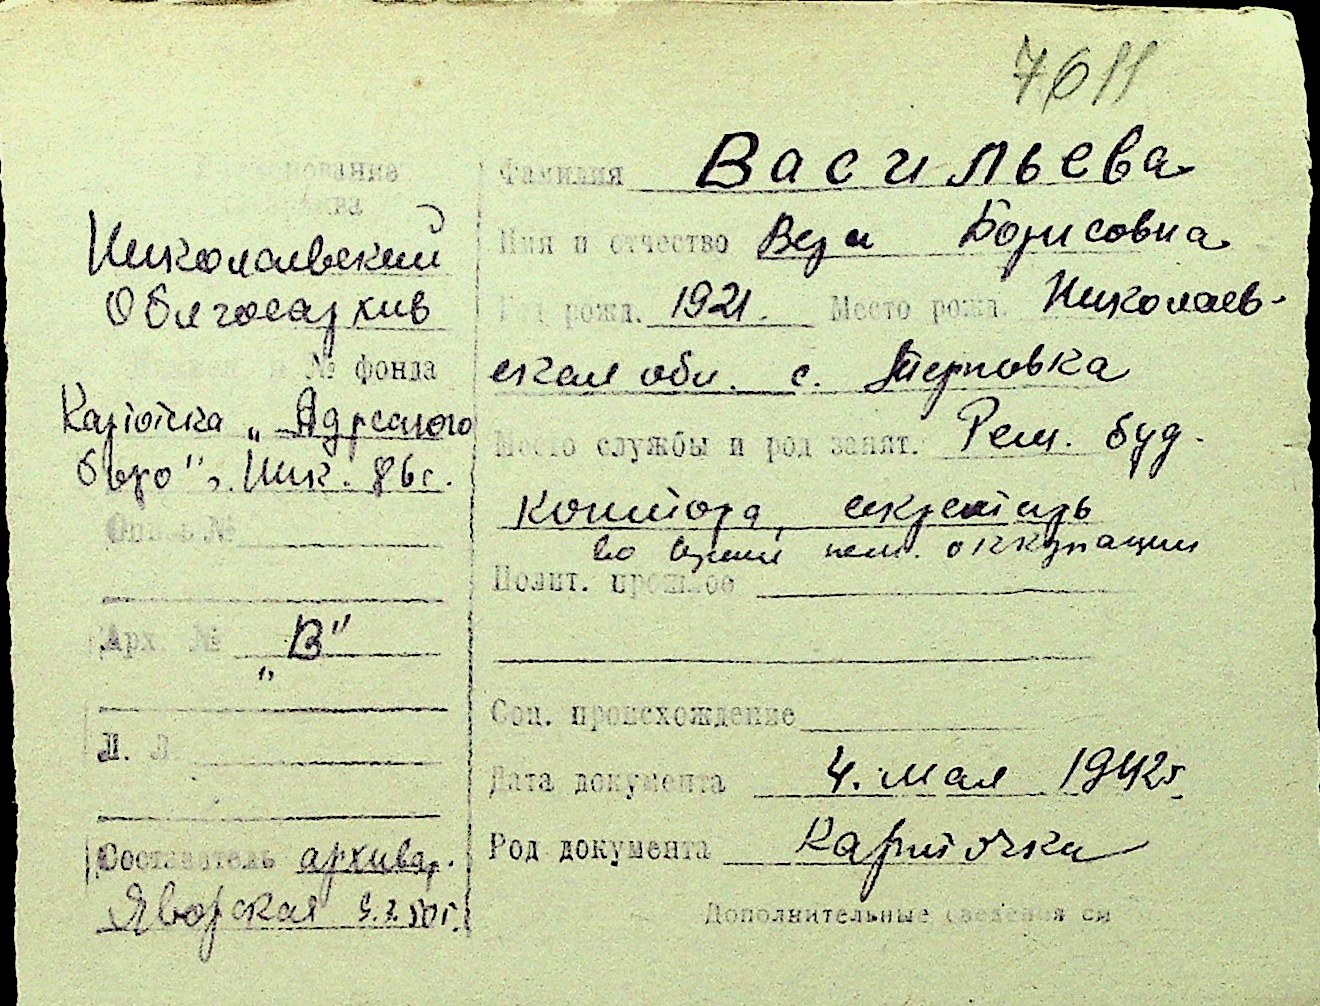 7611
Наименование
архива
Николаевский
Облгосархив
№ фонда
Картотека „Адресного
бюро", Ник.
Опись №
Арх. № „В"
Л. Л.
Составитель архивар.
Яворская
Фамилия Васильева
Имя и отчество Вера Борисовна
Год рожд. 1921. Место рожд. Николаев-
ская обл. с. Терновка
Место службы и род занят. Рем. буд.
контора, секретарь
во время нем. оккупации
Полит. прошлое
Соц. происхождение
Дата документа 4. мая 1942 г.
Род документа Карточка
Дополнительные сведения см